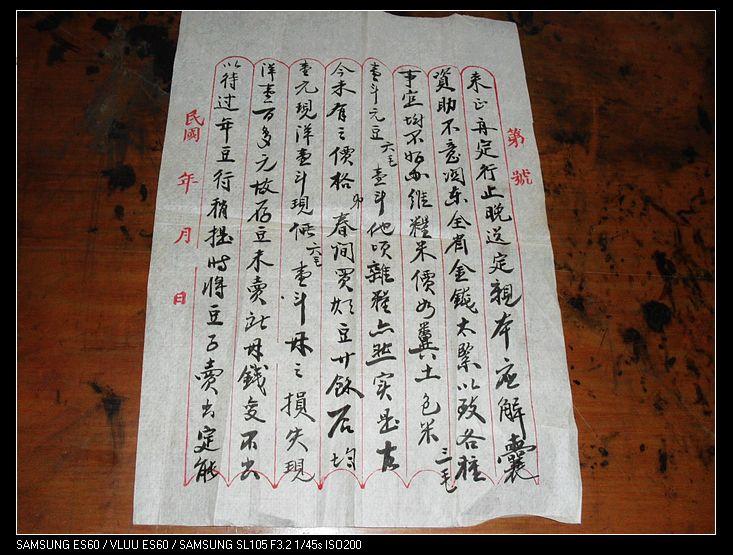 第 號
来正再定行止晚送定親本应解囊
資助不意関东全省金錢太緊以致各種
事宜均不好办維糧米價如糞土色米三毛
壹斗元豆六毛壹斗他項雜糧亦然实是古
今未有之價格春间買豆廿餘石均
壹元現洋壹斗現低六毛壹斗之損失現
洋壹百多元故存豆未賣此錢变不出
以待过年豆行稍提時將豆子賣出定能
民國 年 月 日
SAMSUNG ES60 / VLUU ES60 / SAMSUNG SL105 F3.2 1/45s ISO200